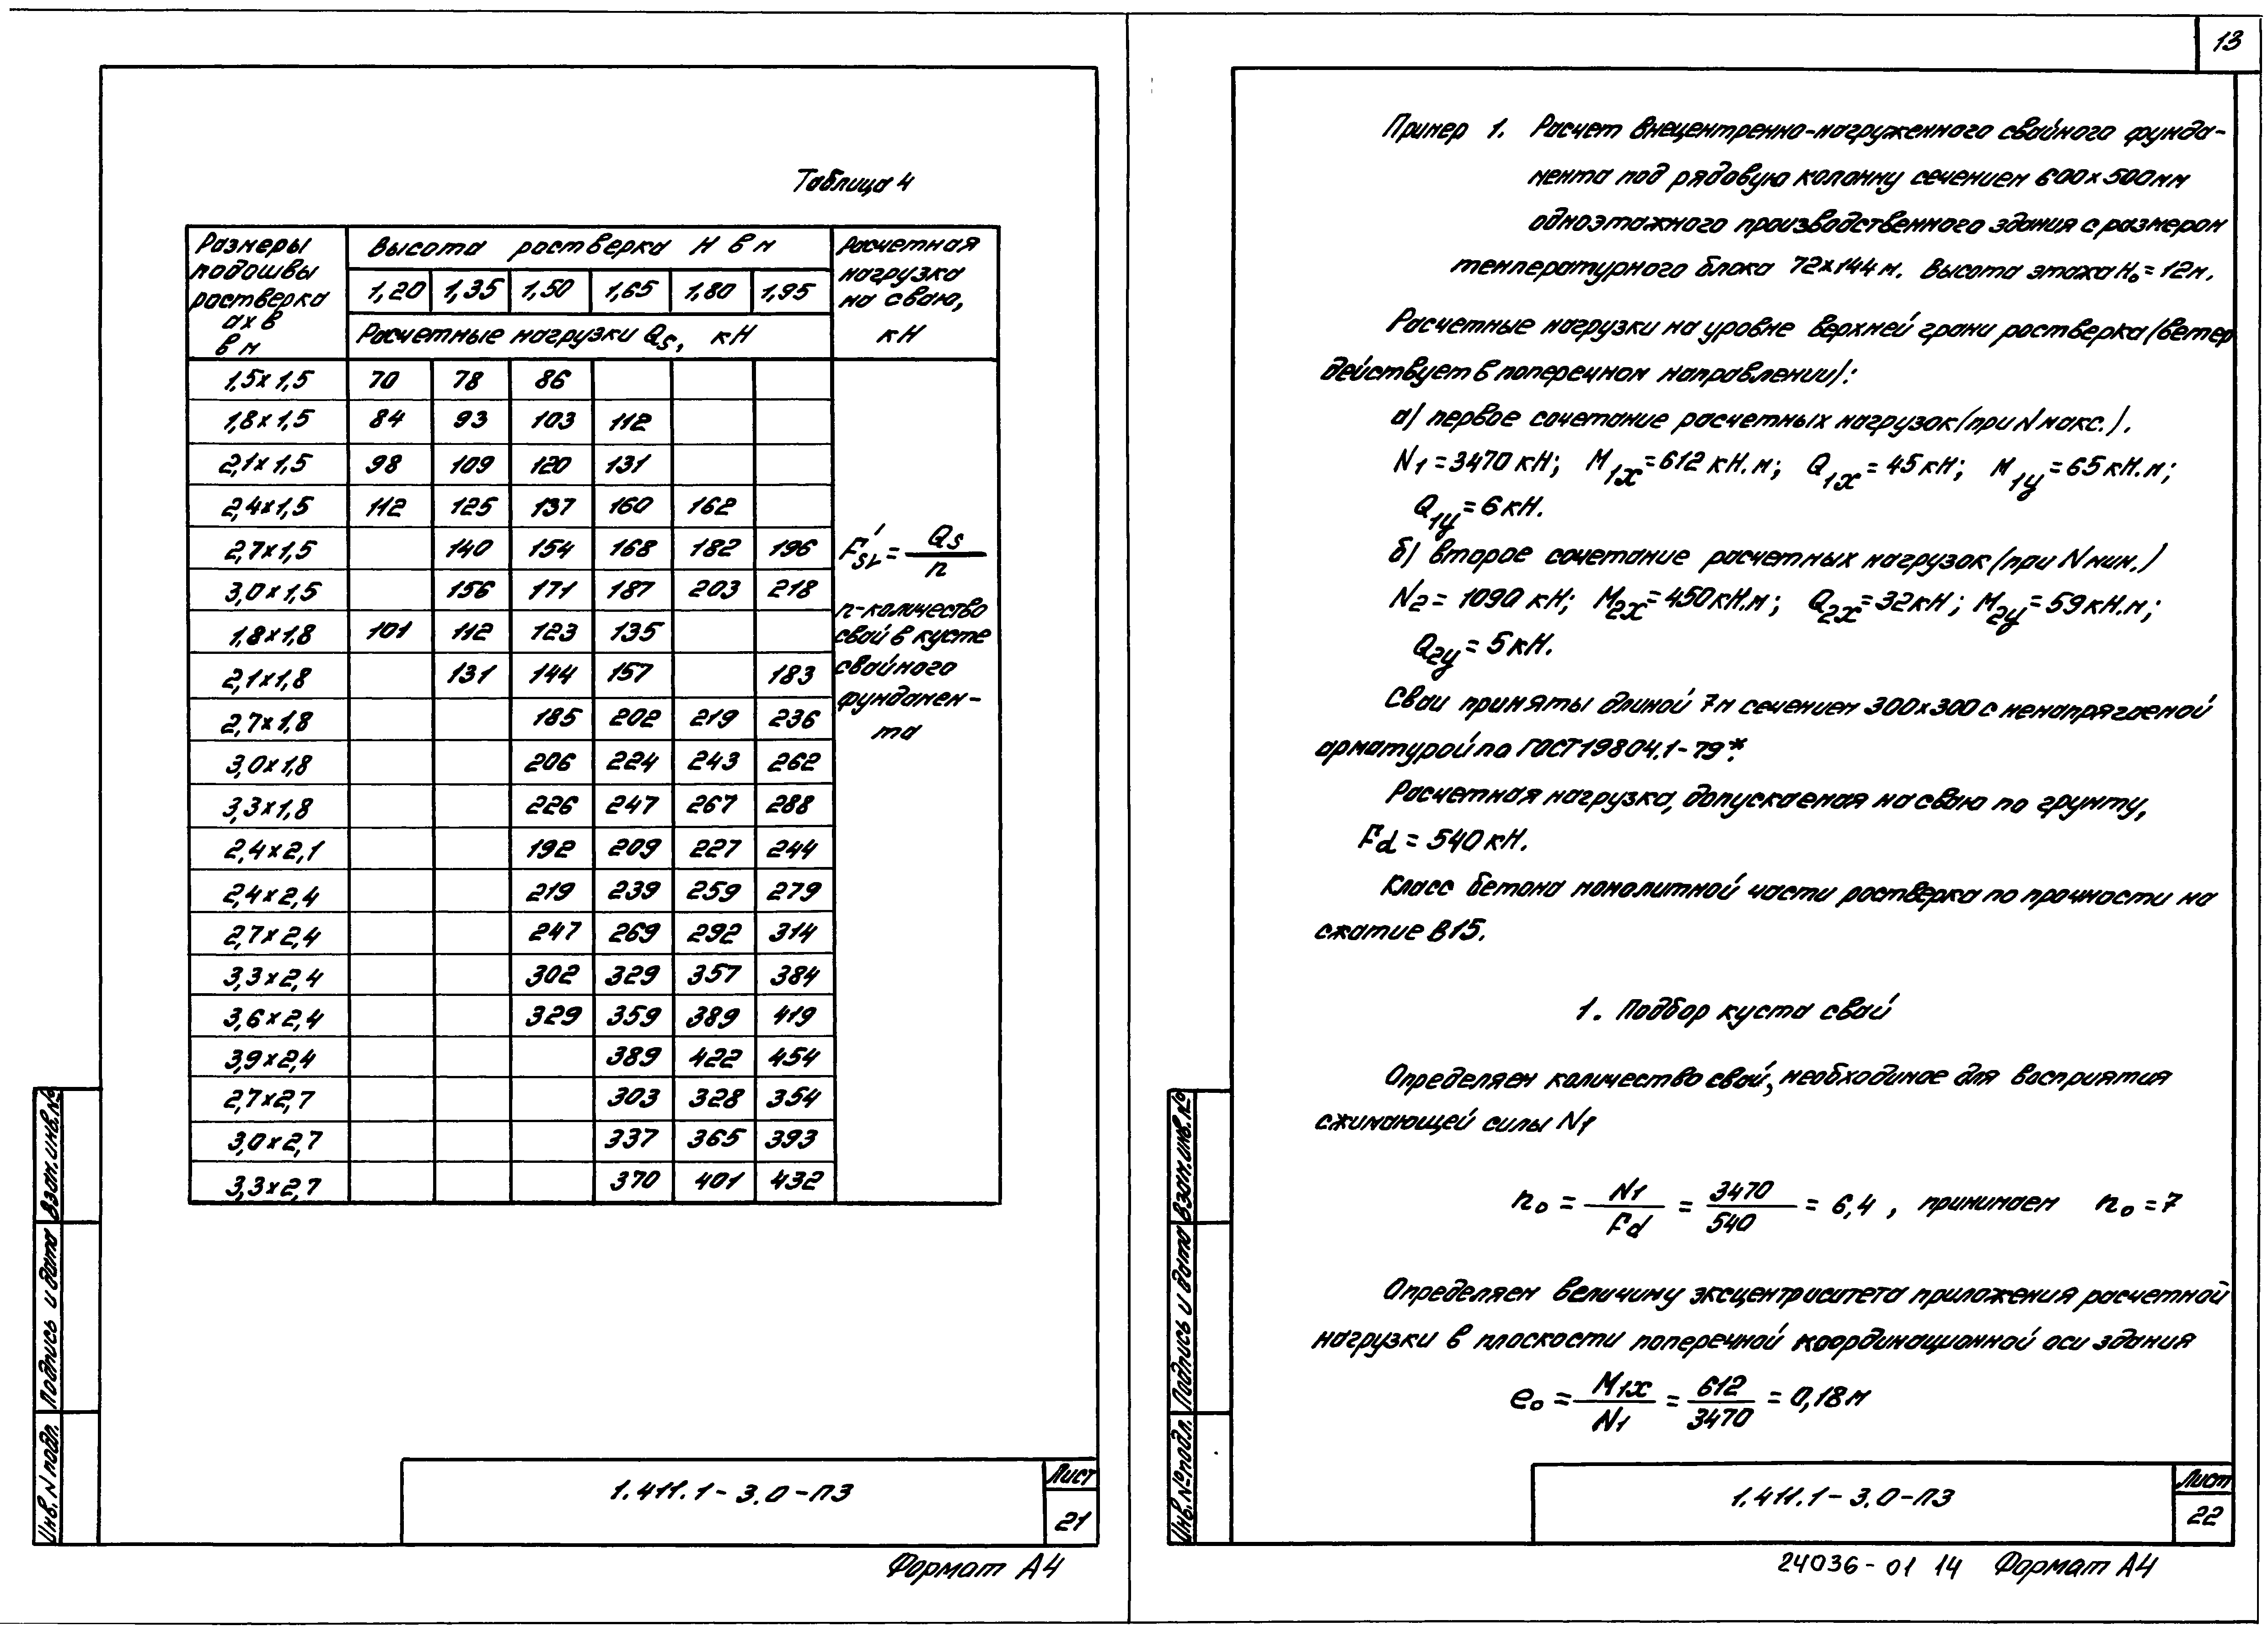 Таблица 4
Размеры подошвы ростверка а х в в м | Высота ростверка Н в м | Расчетная нагрузка на сваю, кН
1,20 | 1,35 | 1,50 | 1,65 | 1,80 | 1,95
Расчетные нагрузки Qs, кН
1,5х1,5 | 70 | 78 | 86
1,8х1,5 | 84 | 93 | 103 | 112
2,1х1,5 | 98 | 109 | 120 | 131
2,4х1,5 | 112 | 125 | 137 | 160 | 162
2,7х1,5 | 140 | 154 | 168 | 182 | 196
3,0х1,5 | 156 | 171 | 187 | 203 | 218
1,8х1,8 | 101 | 112 | 123 | 135
2,1х1,8 | 131 | 144 | 157 | 183
2,7х1,8 | 185 | 202 | 219 | 236
3,0х1,8 | 206 | 224 | 243 | 262
3,3х1,8 | 226 | 247 | 267 | 288
2,4х2,1 | 192 | 209 | 227 | 244
2,4х2,4 | 219 | 239 | 259 | 279
2,7х2,4 | 247 | 269 | 292 | 314
3,3х2,4 | 302 | 329 | 357 | 384
3,6х2,4 | 329 | 359 | 389 | 419
3,9х2,4 | 389 | 422 | 454
2,7х2,7 | 303 | 328 | 354
3,0х2,7 | 337 | 365 | 393
3,3х2,7 | 370 | 401 | 432
F'sv = Qs / n
n-количество
свай в кусте
свайного
фундамен-
та
Инв. N подл. Подпись и дата Взам. инв. №
1.411.1-3.0-ПЗ
Лист
21
Формат А4
13
Пример 1. Расчет внецентренно-нагруженного свайного фунда-
мента под рядовую колонну сечением 600х500мм
одноэтажного производственного здания с размером
температурного блока 72х144м. Высота этажа Н₀=12м.
Расчетные нагрузки на уровне верхней грани ростверка (ветер
действует в поперечном направлении):
а) первое сочетание расчетных нагрузок (при N макс.).
N1=3470кН; M1x=612кН.м; Q1x=45кН; M1y=65кН.м;
Q1y=6кН.
б) второе сочетание расчетных нагрузок (при N мин.)
N2=1090кН; M2x=450кН.м; Q2x=32кН; M2y=59кН.м;
Q2y=5кН.
Сваи приняты длиной 7м сечением 300х300 с ненапрягаемой
арматурой по ГОСТ19804.1-79*.
Расчетная нагрузка, допускаемая на сваю по грунту,
Fd = 540кН.
Класс бетона монолитной части ростверка по прочности на
сжатие В15.
1. Подбор куста свай
Определяем количество свай, необходимое для восприятия
сжимающей силы N1
n₀ = N1 / Fd = 3470 / 540 = 6,4, принимаем n₀=7
Определяем величину эксцентриситета приложения расчетной
нагрузки в плоскости поперечной координационной оси здания
e₀ = M1x / N1 = 612 / 3470 = 0,18м
Инв. № подл. Подпись и дата Взам. инв. №
1.411.1-3.0-ПЗ
Лист
22
24036-01 14 Формат А4